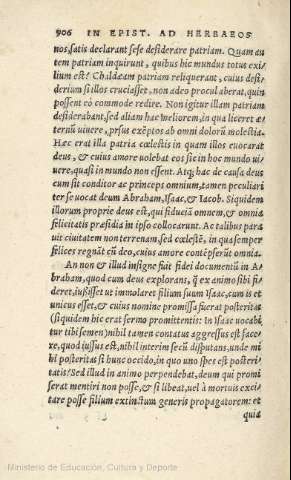 906 IN EPIST. AD HEBRAEOS
nos, satis declarant sese desiderare patriam. Quam au
tem patriam inquirunt, quibus hic mundus totus exi/
lium est? Chaldæam patriam reliquerant, cuius desi/
derium si illos cruciasset, non adeo procul aberat, quin
possent cò commode redire. Non igitur illam patriam
desiderabant, sed aliam hac meliorem, in qua liceret æ/
ternū uiuere, prsus exēptos ab omni dolorū molestia.
Hæc erat illa patria cœlestis in quam illos euocarat
deus, & cuius amore uolebat eos sic in hoc mundo ui/
uere, quasi in mundo non essent. Atq; hac de causa deus
cum sit conditor ac princeps omnium, tamen peculiari
ter se uocat deum Abraham, Isaac, & Iacob. Siquidem
illorum proprie deus est, qui fiduciā omnem, & omnia
felicitatis præsidia in ipso collocarunt. Ac talibus para
uit ciuitatem non terrenam, sed cœlestē, in qua semper
felices regnāt cū deo, cuius amore contēpserūt omnia.
An non & illud insigne fuit fidei documentū in A/
braham, quod cum deus explorans, q̄ ex animo sibi fi/
deret, iußisset ut immolaret filium suum Isaac, cum is et
unicus esset, & cuius nomine promissa fuerat posteritas
(siquidem hic erat sermo promittentis: In Isaac uocabi
tur tibi semen) nihil tamen contatus aggressus est face/
re, quod iussus est, nihil interim secū disputans, unde mi
hi posteritas si hunc occido, in quo uno spes est posteri/
tatis? Sed illud in animo perpendebat, deum qui promi
serat mentiri non posse, & si libeat, uel à mortuis exci/
tare posse filium extinctum generis propagatorem: et
quia
Ministerio de Educación, Cultura y Deporte